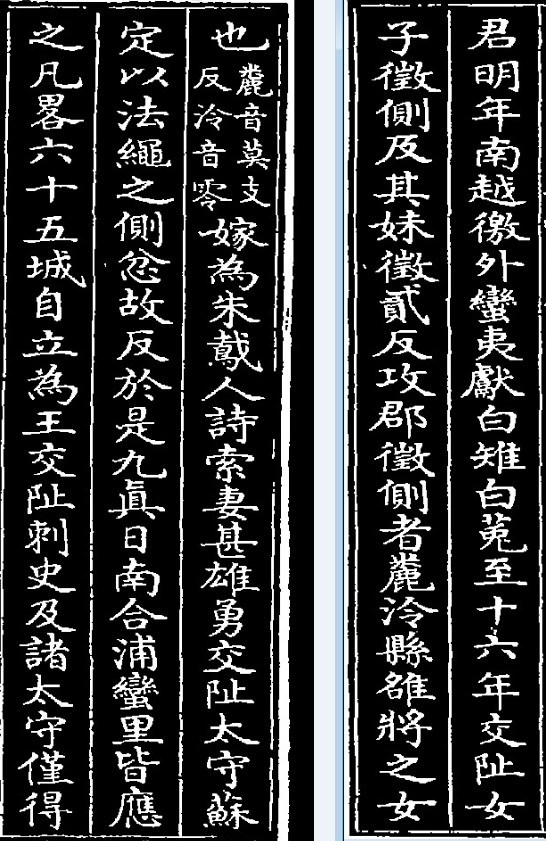 君明年南越徼外蠻夷獻白雉白菟至十六年交阯女
子徵側及其妹徵貳反攻郡徵側者麊泠縣雒將之女
也
麊音莫支
反泠音零
嫁為朱䳒人詩索妻甚雄勇交阯太守蘇
定以法繩之側忿故反於是九眞日南合浦蠻里皆應
之凡畧六十五城自立為王交阯刺史及諸太守僅得